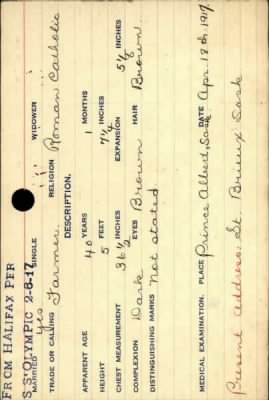 FROM HALIFAX PER
S.S. OLYMPIC 2-6-17
MARRIED yes SINGLE WIDOWER
TRADE OR CALLING Farmer RELIGION Roman Catholic
DESCRIPTION.
APPARENT AGE 40 YEARS 1 MONTHS
HEIGHT 5 FEET 7 1/4 INCHES
CHEST MEASUREMENT 36 1/2 INCHES EXPANSION 5 1/2 INCHES
COMPLEXION Dark EYES Brown HAIR Brown
DISTINGUISHING MARKS not stated
MEDICAL EXAMINATION. PLACE Prince Albert, Sask DATE Apr. 18th, 1917
Present address: St. Brieux Sask